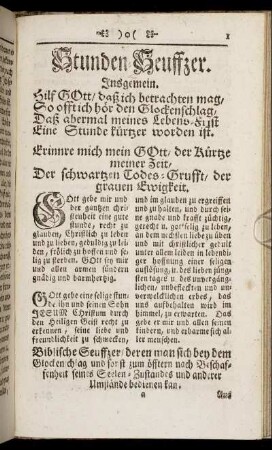 )o( 1
Stunden Seuffzer.
Insgemein.
Hilf GOtt/ daß ich betrachten mag/
So offt ich hör den Glockenschlag/
Daß abermal meines Lebens-Frist
Eine Stunde kürtzer worden ist.
Erinnre mich mein GOtt/ der Kürtze
meiner Zeit/
Der schwartzen Todes-Grufft/ der
grauen Ewigkeit.
GOtt gebe mir und
der gantzen Chri-
stenheit eine gute
stunde/ recht zu
glauben/ Christlich zu leben
und zu lieben/ gedultig zu lei-
den/ frölich zu hoffen und se-
lig zu sterben. GOtt sey mir
und allen armen sündern
gnädig und barmhertzig.
GOtt gebe eine selige stun-
de ihn und seinen Sohn
JESUM Christum durch
den Heiligen Geist recht zu
erkennen/ seine liebe und
freundlichkeit zu schmecken/
und im glauben zu ergreiffen
und zu halten/ und durch sei-
ne gnade und krafft züchtig/
gerecht u. gottselig zu leben/
an dem nechsten liebe zu üben
und mit christlicher gedult
unter allem leiden in leben-
diger hoffnung einer seligen
auflösung/ u. des lieben jüng-
sten tages u. des unvergäng-
lichen/ unbefleckten und un-
verwelcklichen erbes/ das
uns aufbehalten wird im
himmel/ zu erwarten. Das
gebe er mir und allen seinen
kindern/ und erbarme sich al-
ler menschen.
Biblische Seuffzer/ deren man sich bey dem
Glockenschlag und sonst zum öfftern nach Beschaf-
fenheit seines Seelen-Zustandes und anderer
Umstände bedienen kan.
a Aus